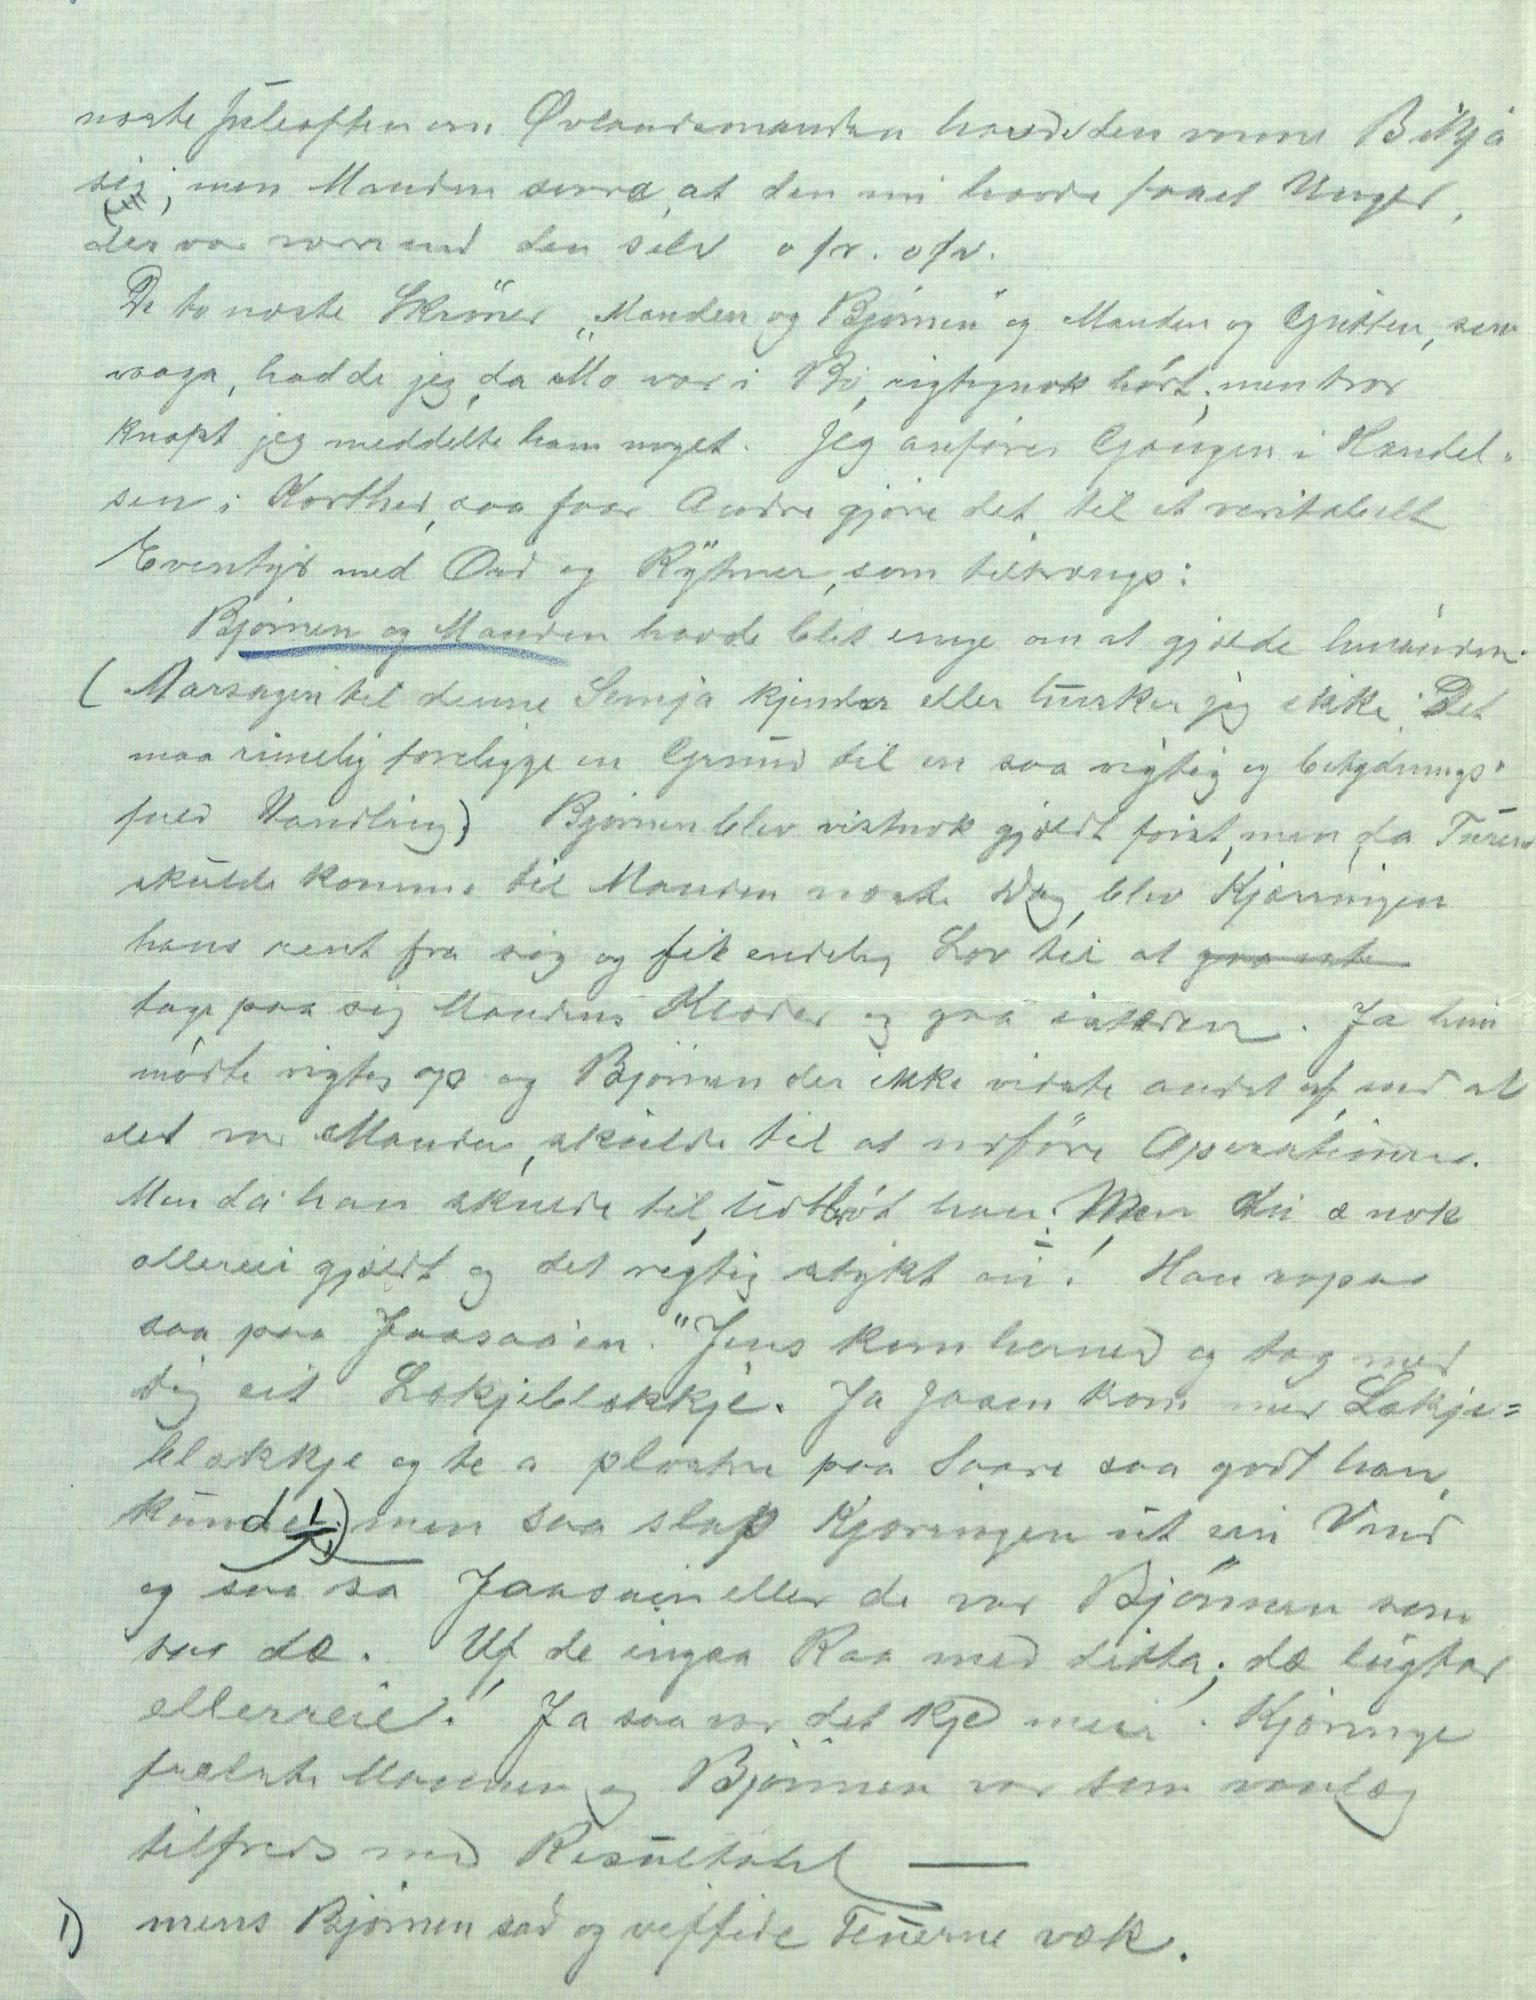 næste Juleaften om Øvlandsmanden havde den Bikja
sig, men Manden svara, at den nu havde faaet Unger,
der var værre end den selv o s v. o s v.
De to næste Skrøner "Manden og Bjørnen" og Manden og Gritten, som
vaaga, hadde jeg, da Mo var i Bø, rigtignok hørt; men tror
knapt jeg meddelte ham noget. Jeg anfører Gangen i Handel-
sen i Korthed, saa faar Andre gjøre det til et veritabelt
Eventyr med Ord og Rytmer, som tiltrængs:
Bjørnen og Manden havde blit enige om at gjælde hinanden.
(Aarsagen til denne Semja kjender eller husker jeg ikke. Det
maa rimelig foreligge en Grund til en saa vigtig og betydnings-
fuld Handling) Bjørnen blev vistnok gjældt først, men da Turen
skulde komme til Manden næste Dag, blev Kjærringen
hans rent fra sig og fik endelig Lov til at gaa
tage paa sig Mandens Klæder og gaa isteden. Ja hun
mødte rigtig op og Bjørnen der ikke vidste andet af, end at
det var Manden, skulde til at udføre Operationen.
Men da han skulde til, udbrøt han: Men du æ nok
allereie gjældt og det rigtig stykt au! Han ropar
saa paa Jaasaaen. "Jens kom herned og tag med
dig eit Lækjeblækkje. Ja Jaasen kom med Lækje=
blækkje og te a plastre paa Saare saa godt han
kunde 1) men saa slap Kjæringen ut ein Vind
og saa sa Jaasaaen eller de var Bjørnen som
sae dæ. Uf, de ingaa Raa med ditta; dæ lugtar
ellereie! Ja saa var det kje meir. Kjæringe
frælste Mannen og Bjørnen var som vanleg
tilfreds med Resultatet —
1) mens Bjørnen sad og viftede Fluerne væk.